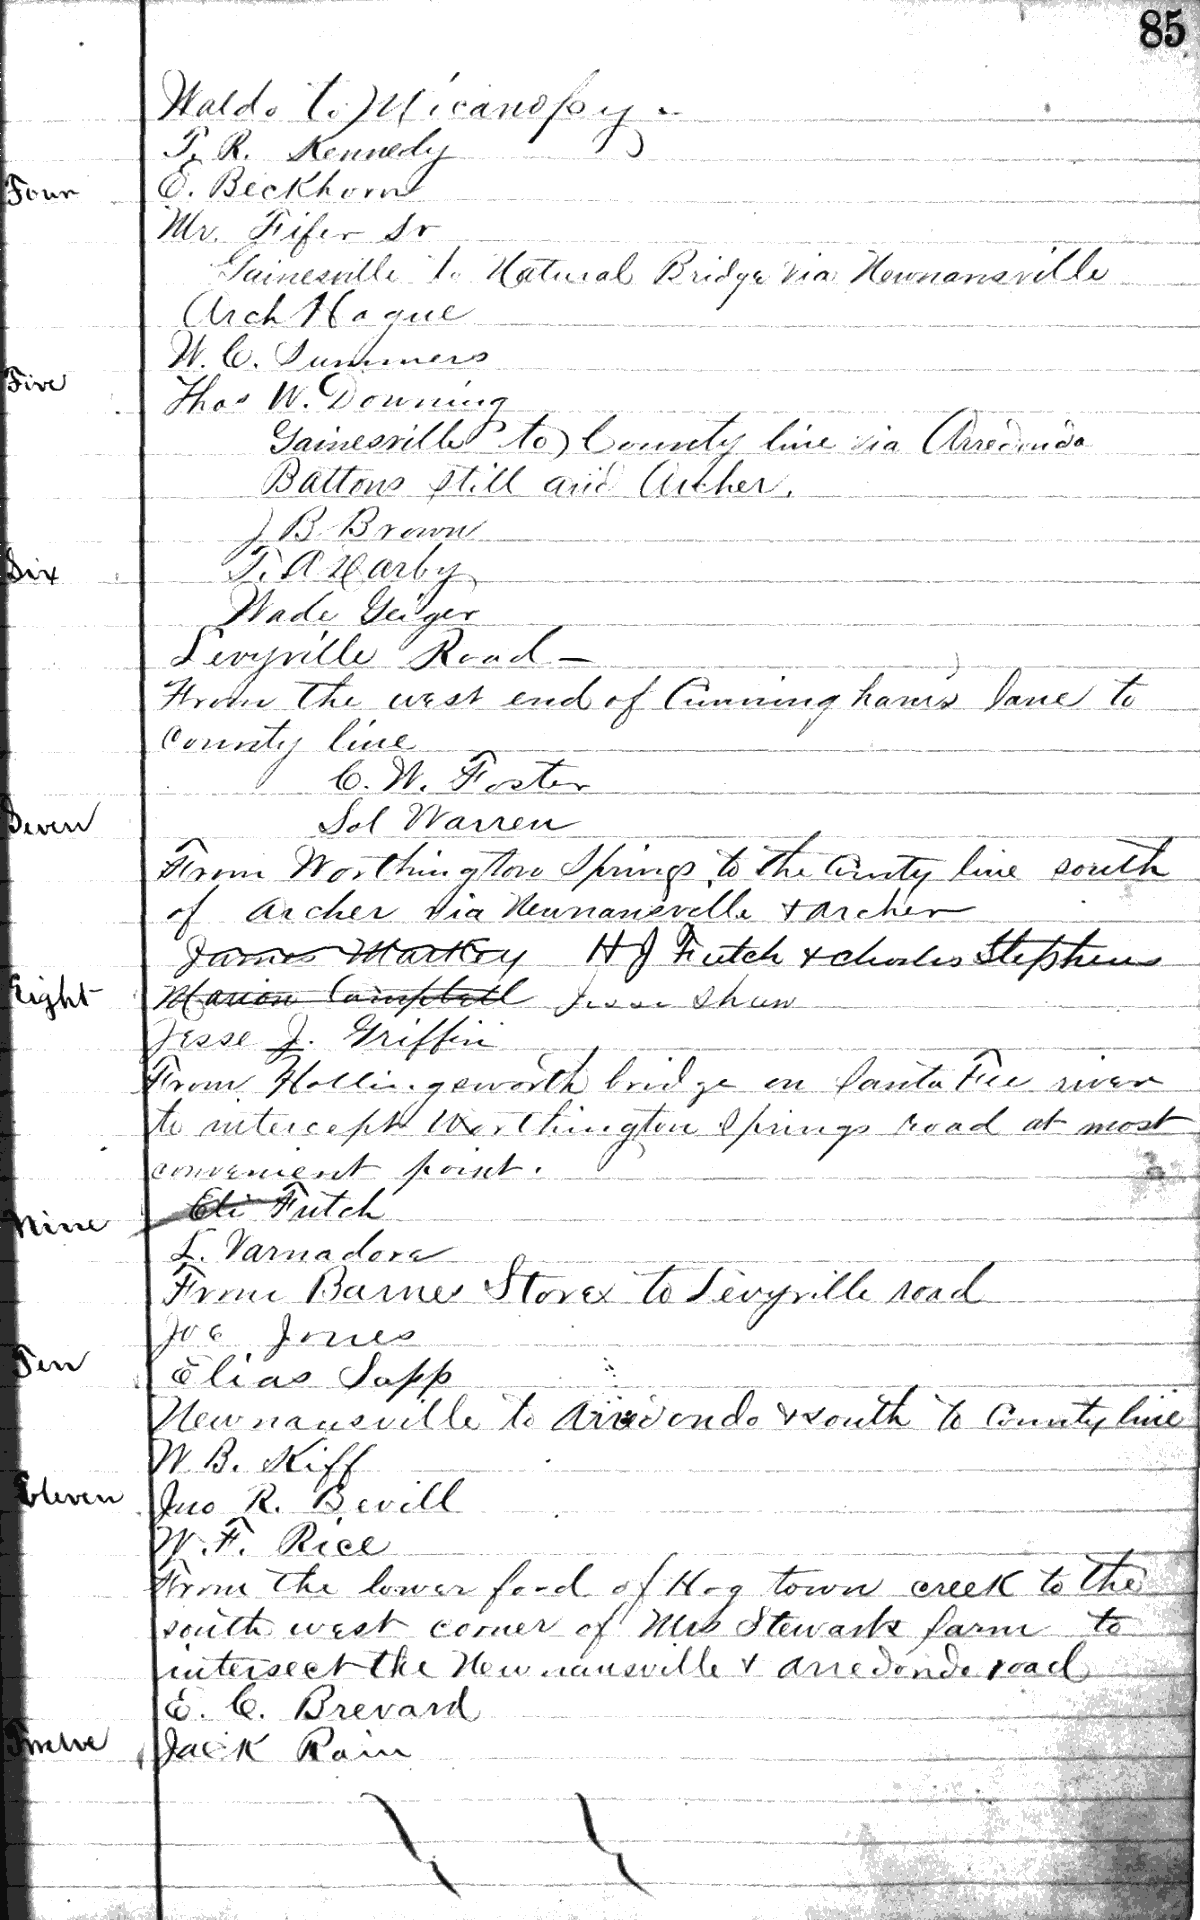 85
Waldo to Micanopy
T. R. Kennedy
Four E. Beckhorn
Mr. Fifer Sr
Gainesville to Natural Bridge via Newnansville
Arch Hague
W. C. Summers
Five Thos W. Downing
Gainesville to County line via Arredondo
Battons Still and Archer.
J B Brown
Six T. A Harby
Wade Geiger
Levyville Road —
From the west end of Cunningham's lane to
county line
C. W. Foster
Seven Sol Warren
From Worthington Springs to the County line south
of Archer via Newnansville & Archer
James Markey H J Futch & Charles Stephens
Eight Marion Campbell Jesse Shaw
Jesse J. Griffin
From Hollingsworth bridge on Santa Fee river
to intercept Worthington Springs road at most
convenient point.
Eli Futch
Nine L. Varnadore
From Barnes Store to Levyville road
Joe Jones
Ten Elias Sapp
Newnansville to Arredondo & south to County line
W. B. Kiff
Eleven Jno R. Bevill
W. F. Rice
From the lower ford of Hog town creek to the
south west corner of Mrs Stewarts farm to
intersect the Newnansville & Arredondo road
E. C. Brevard
Twelve Jack Rain